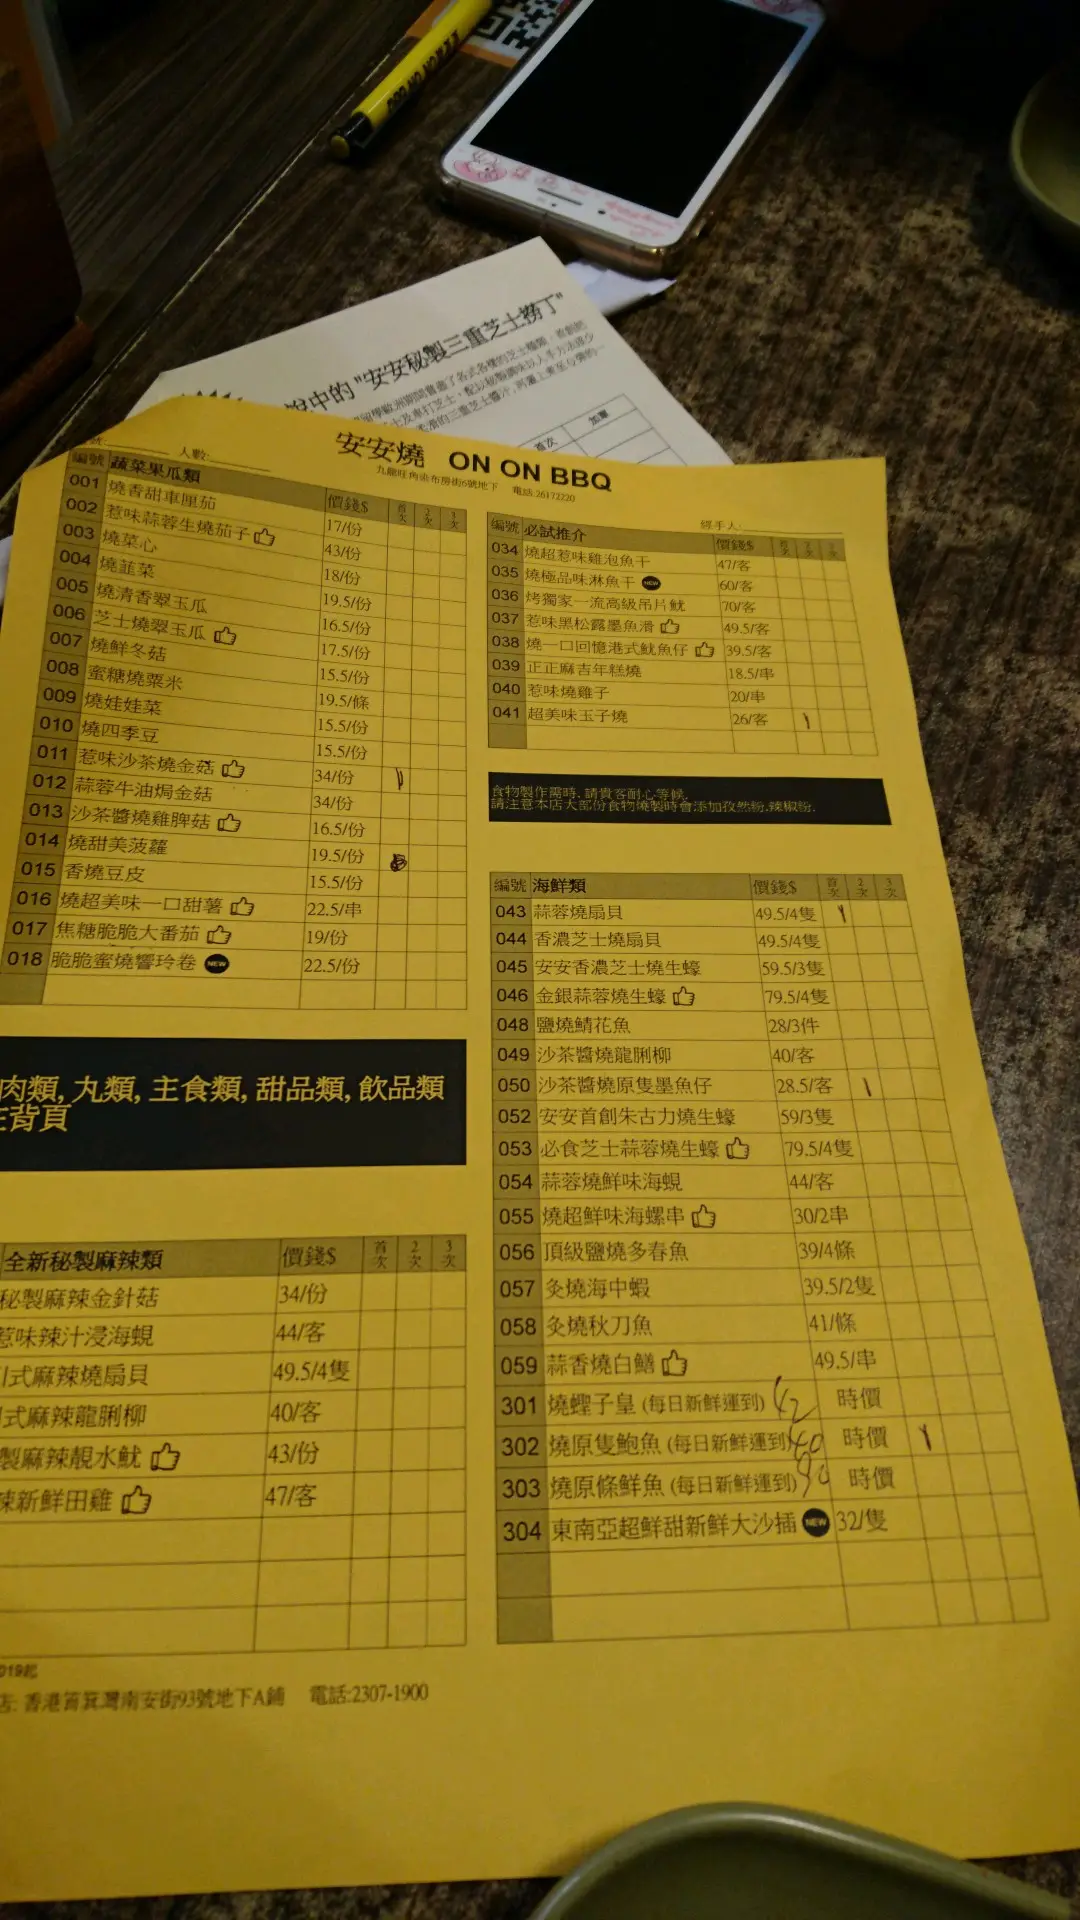 說中的 "安安秘製三重芝士撈丁"
首次 加單
安安燒 ON ON BBQ
九龍旺角染布房街6號地下 電話:26172220
人數:
經手人:
編號 蔬菜果瓜類 價錢$ 首次 2次 3次
001 燒香甜車厘茄 17/份
002 惹味蒜蓉生燒茄子 43/份
003 燒菜心 18/份
004 燒韮菜 19.5/份
005 燒清香翠玉瓜 16.5/份
006 芝士燒翠玉瓜 17.5/份
007 燒鮮冬菇 15.5/份
008 蜜糖燒粟米 19.5/條
009 燒娃娃菜 15.5/份
010 燒四季豆 15.5/份
011 惹味沙茶燒金菇 34/份
012 蒜蓉牛油焗金菇 34/份
013 沙茶醬燒雞脾菇 16.5/份
014 燒甜美菠蘿 19.5/份
015 香燒豆皮 15.5/份
016 燒超美味一口甜薯 22.5/串
017 焦糖脆脆大番茄 19/份
018 脆脆蜜燒響玲卷 NEW 22.5/份
肉類, 丸類, 主食類, 甜品類, 飲品類
背頁
全新秘製麻辣類 價錢$ 首次 2次 3次
秘製麻辣金針菇 34/份
惹味辣汁浸海蜆 44/客
式麻辣燒扇貝 49.5/4隻
式麻辣龍脷柳 40/客
製麻辣靚水魷 43/份
辣新鮮田雞 47/客
019起
店: 香港筲箕灣南安街93號地下A鋪 電話:2307-1900
編號 必試推介 價錢$ 首次 2次 3次
034 燒超惹味雞泡魚干 47/客
035 燒極品味淋魚干 NEW 60/客
036 烤獨家一流高級吊片魷 70/客
037 惹味黑松露墨魚滑 49.5/客
038 燒一口回憶港式魷魚仔 39.5/客
039 正正麻吉年糕燒 18.5/串
040 惹味燒雞子 20/串
041 超美味玉子燒 26/客
食物製作需時, 請貴客耐心等候.
請注意本店大部份食物燒製時會添加孜然粉,辣椒粉.
編號 海鮮類 價錢$ 首次 2次 3次
043 蒜蓉燒扇貝 49.5/4隻
044 香濃芝士燒扇貝 49.5/4隻
045 安安香濃芝士燒生蠔 59.5/3隻
046 金銀蒜蓉燒生蠔 79.5/4隻
048 鹽燒鯖花魚 28/3件
049 沙茶醬燒龍脷柳 40/客
050 沙茶醬燒原隻墨魚仔 28.5/客
052 安安首創朱古力燒生蠔 59/3隻
053 必食芝士蒜蓉燒生蠔 79.5/4隻
054 蒜蓉燒鮮味海蜆 44/客
055 燒超鮮味海螺串 30/2串
056 頂級鹽燒多春魚 39/4條
057 灸燒海中蝦 39.5/2隻
058 灸燒秋刀魚 41/條
059 蒜香燒白鱔 49.5/串
301 燒蟶子皇 (每日新鮮運到) 42 時價
302 燒原隻鮑魚 (每日新鮮運到) 40 時價
303 燒原條鮮魚 (每日新鮮運到) 90 時價
304 東南亞超鮮甜新鮮大沙插 NEW 32/隻